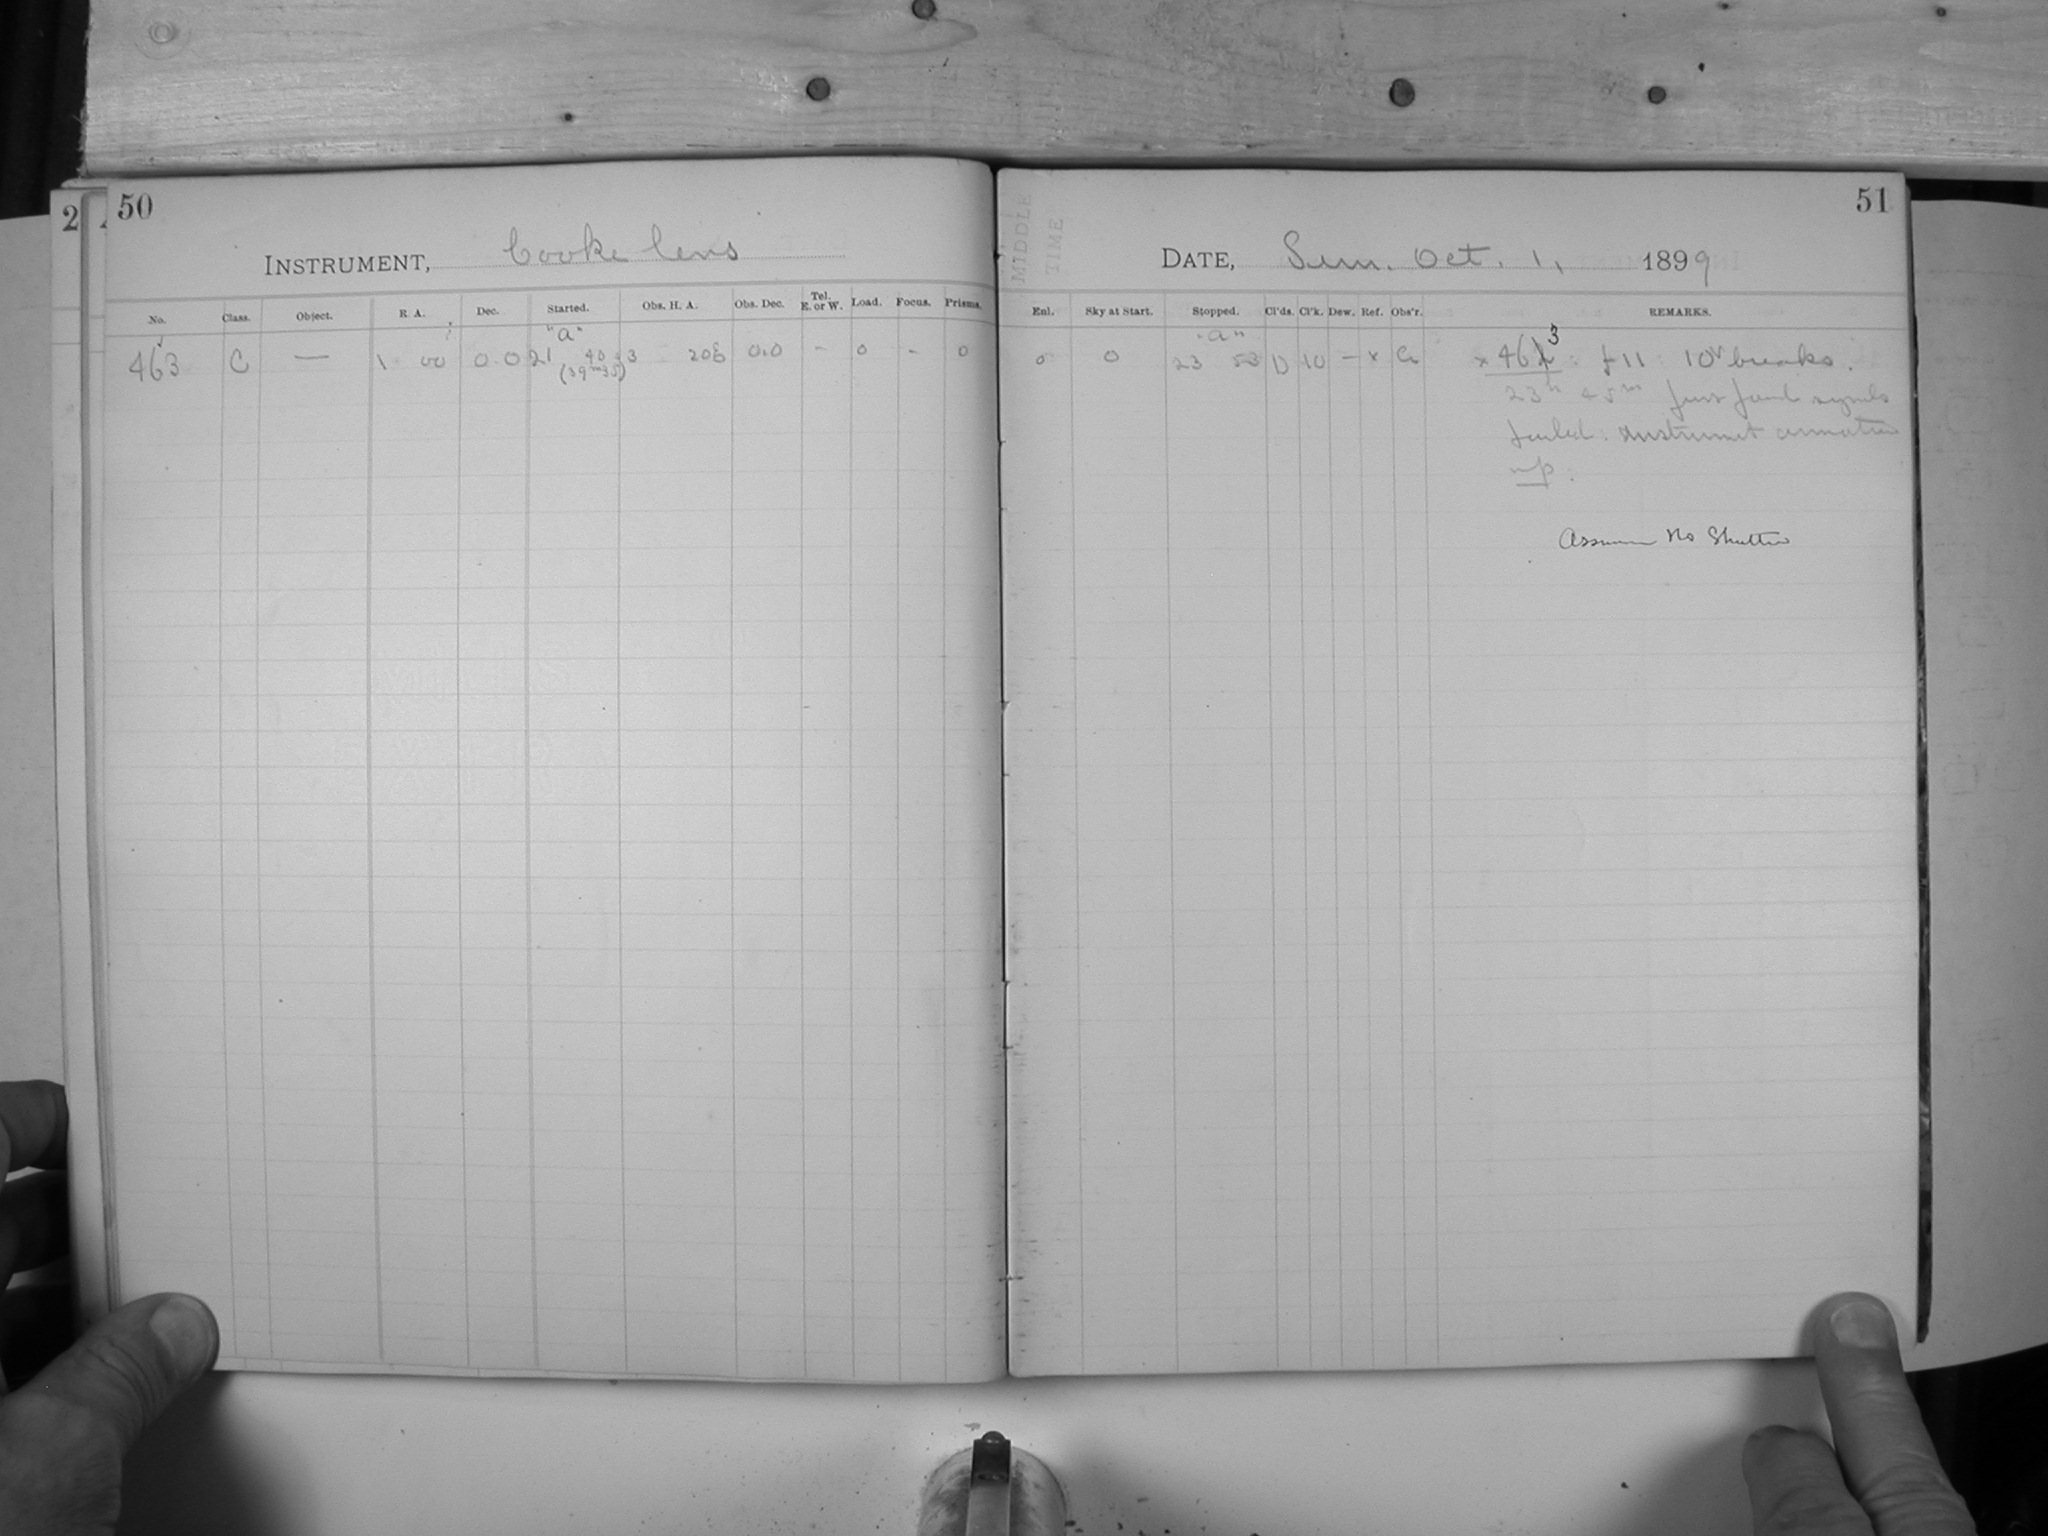 2
50
INSTRUMENT, Cooke lens
No. Class. Object. R. A. Dec. Started. Obs. H. A. Obs. Dec. Tel. E. or W. Load. Focus. Prisms.
"a"
463 C — 1 00 0.0 21 40 3 208 0.0 – 0 – 0
(39m35)
51
MIDDLE
TIME
DATE, Sun. Oct. 1, 1899
Enl. Sky at Start. Stopped. Cl'ds. Cl'k. Dew. Ref. Obs'r. REMARKS.
"a" 3
0 0 23 53 10 — x x 462 : f 11 : 10 breaks.
23h 45m signals
failed : Instrument
up.
Assume No Shutter